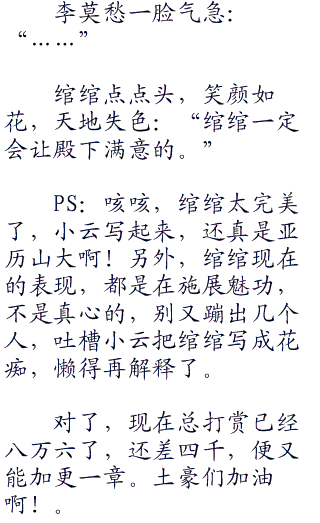 李莫愁一脸气急：
“……”
绾绾点点头，笑颜如
花，天地失色：“绾绾一定
会让殿下满意的。”
PS：咳咳，绾绾太完美
了，小云写起来，还真是亚
历山大啊！另外，绾绾现在
的表现，都是在施展魅功，
不是真心的，别又蹦出几个
人，吐槽小云把绾绾写成花
痴，懒得再解释了。
对了，现在总打赏已经
八万六了，还差四千，便又
能加更一章。土豪们加油
啊！。